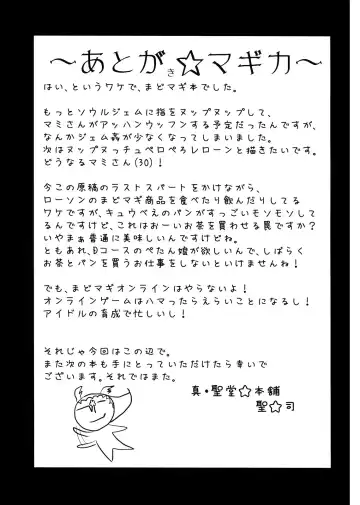 〜あとがき☆マギカ〜
はい、というワケで、まどマギ本でした。
もっとソウルジェムに指をヌップヌップして、
マミさんがアッハンウッフンする予定だったんですが、
なんかジェム姦が少なくなってしまいました。
次はヌップヌッチュペロペろレローンと描きたいです。
どうなるマミさん(30)！
今この原稿のラストスパートをかけながら、
ローソンのまどマギ商品を食べたり飲んだりしてる
ワケですが、キュウべえのパンがすっごいモソモソして
るんですけど、これはおーいお茶を買わせる罠ですか？
いやまぁ普通に美味しいんですけどね。
ともあれ、Bコースのぺたん娘が欲しいんで、しばらく
お茶とパンを買うお仕事をしないといけませんね！
でも、まどマギオンラインはやらないよ！
オンラインゲームはハマったらえらいことになるし！
アイドルの育成で忙しいし！
それじゃ今回はこの辺で。
また次の本も手にとっていただけたら幸いで
ございます。それではまた。
真・聖堂☆本舗
聖☆司